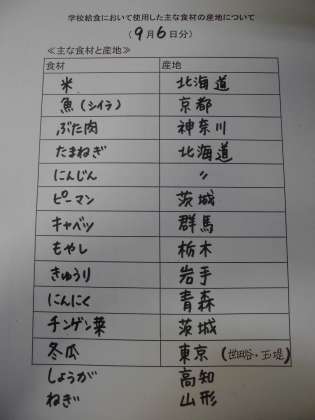 学校給食において使用した主な食材の産地について
(9月6日分)
≪主な食材と産地≫
食材 産地
米 北海道
魚(シイラ) 京都
ぶた肉 神奈川
たまねぎ 北海道
にんじん 〃
ピーマン 茨城
キャベツ 群馬
もやし 栃木
きゅうり 岩手
にんにく 青森
チンゲン菜 茨城
冬瓜 東京(世田谷・玉堤)
しょうが 高知
ねぎ 山形